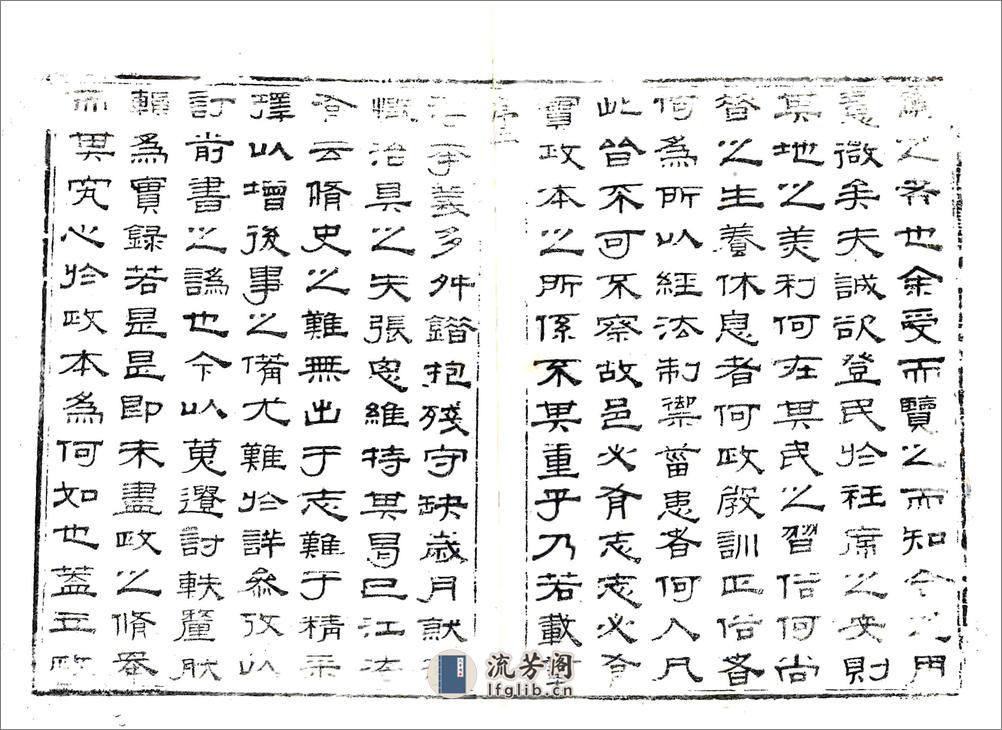 之也余受而覽之而知令之用
意微矣夫誠欲登民於衽席之安則
其地之美利何在其民之習俗何尚
昔之生養休息者何政教訓正俗者
何為所以經法制禦菑患者何人凡
此皆不可不察故邑必有志志必有
實政本之所係不其重乎乃若載
義多舛錯抱殘守缺歲月
慨治具之失張思維持其曷已江
有云脩史之難無出于志難于精采
擇以增後事之備尤難於詳參攷以
訂前書之譌也今以蒐遺討軼釐
賴為實録若是是即未盡政之脩舉
而其究心於政本為何如也蓋立政
流芳阁
lfglib.cn